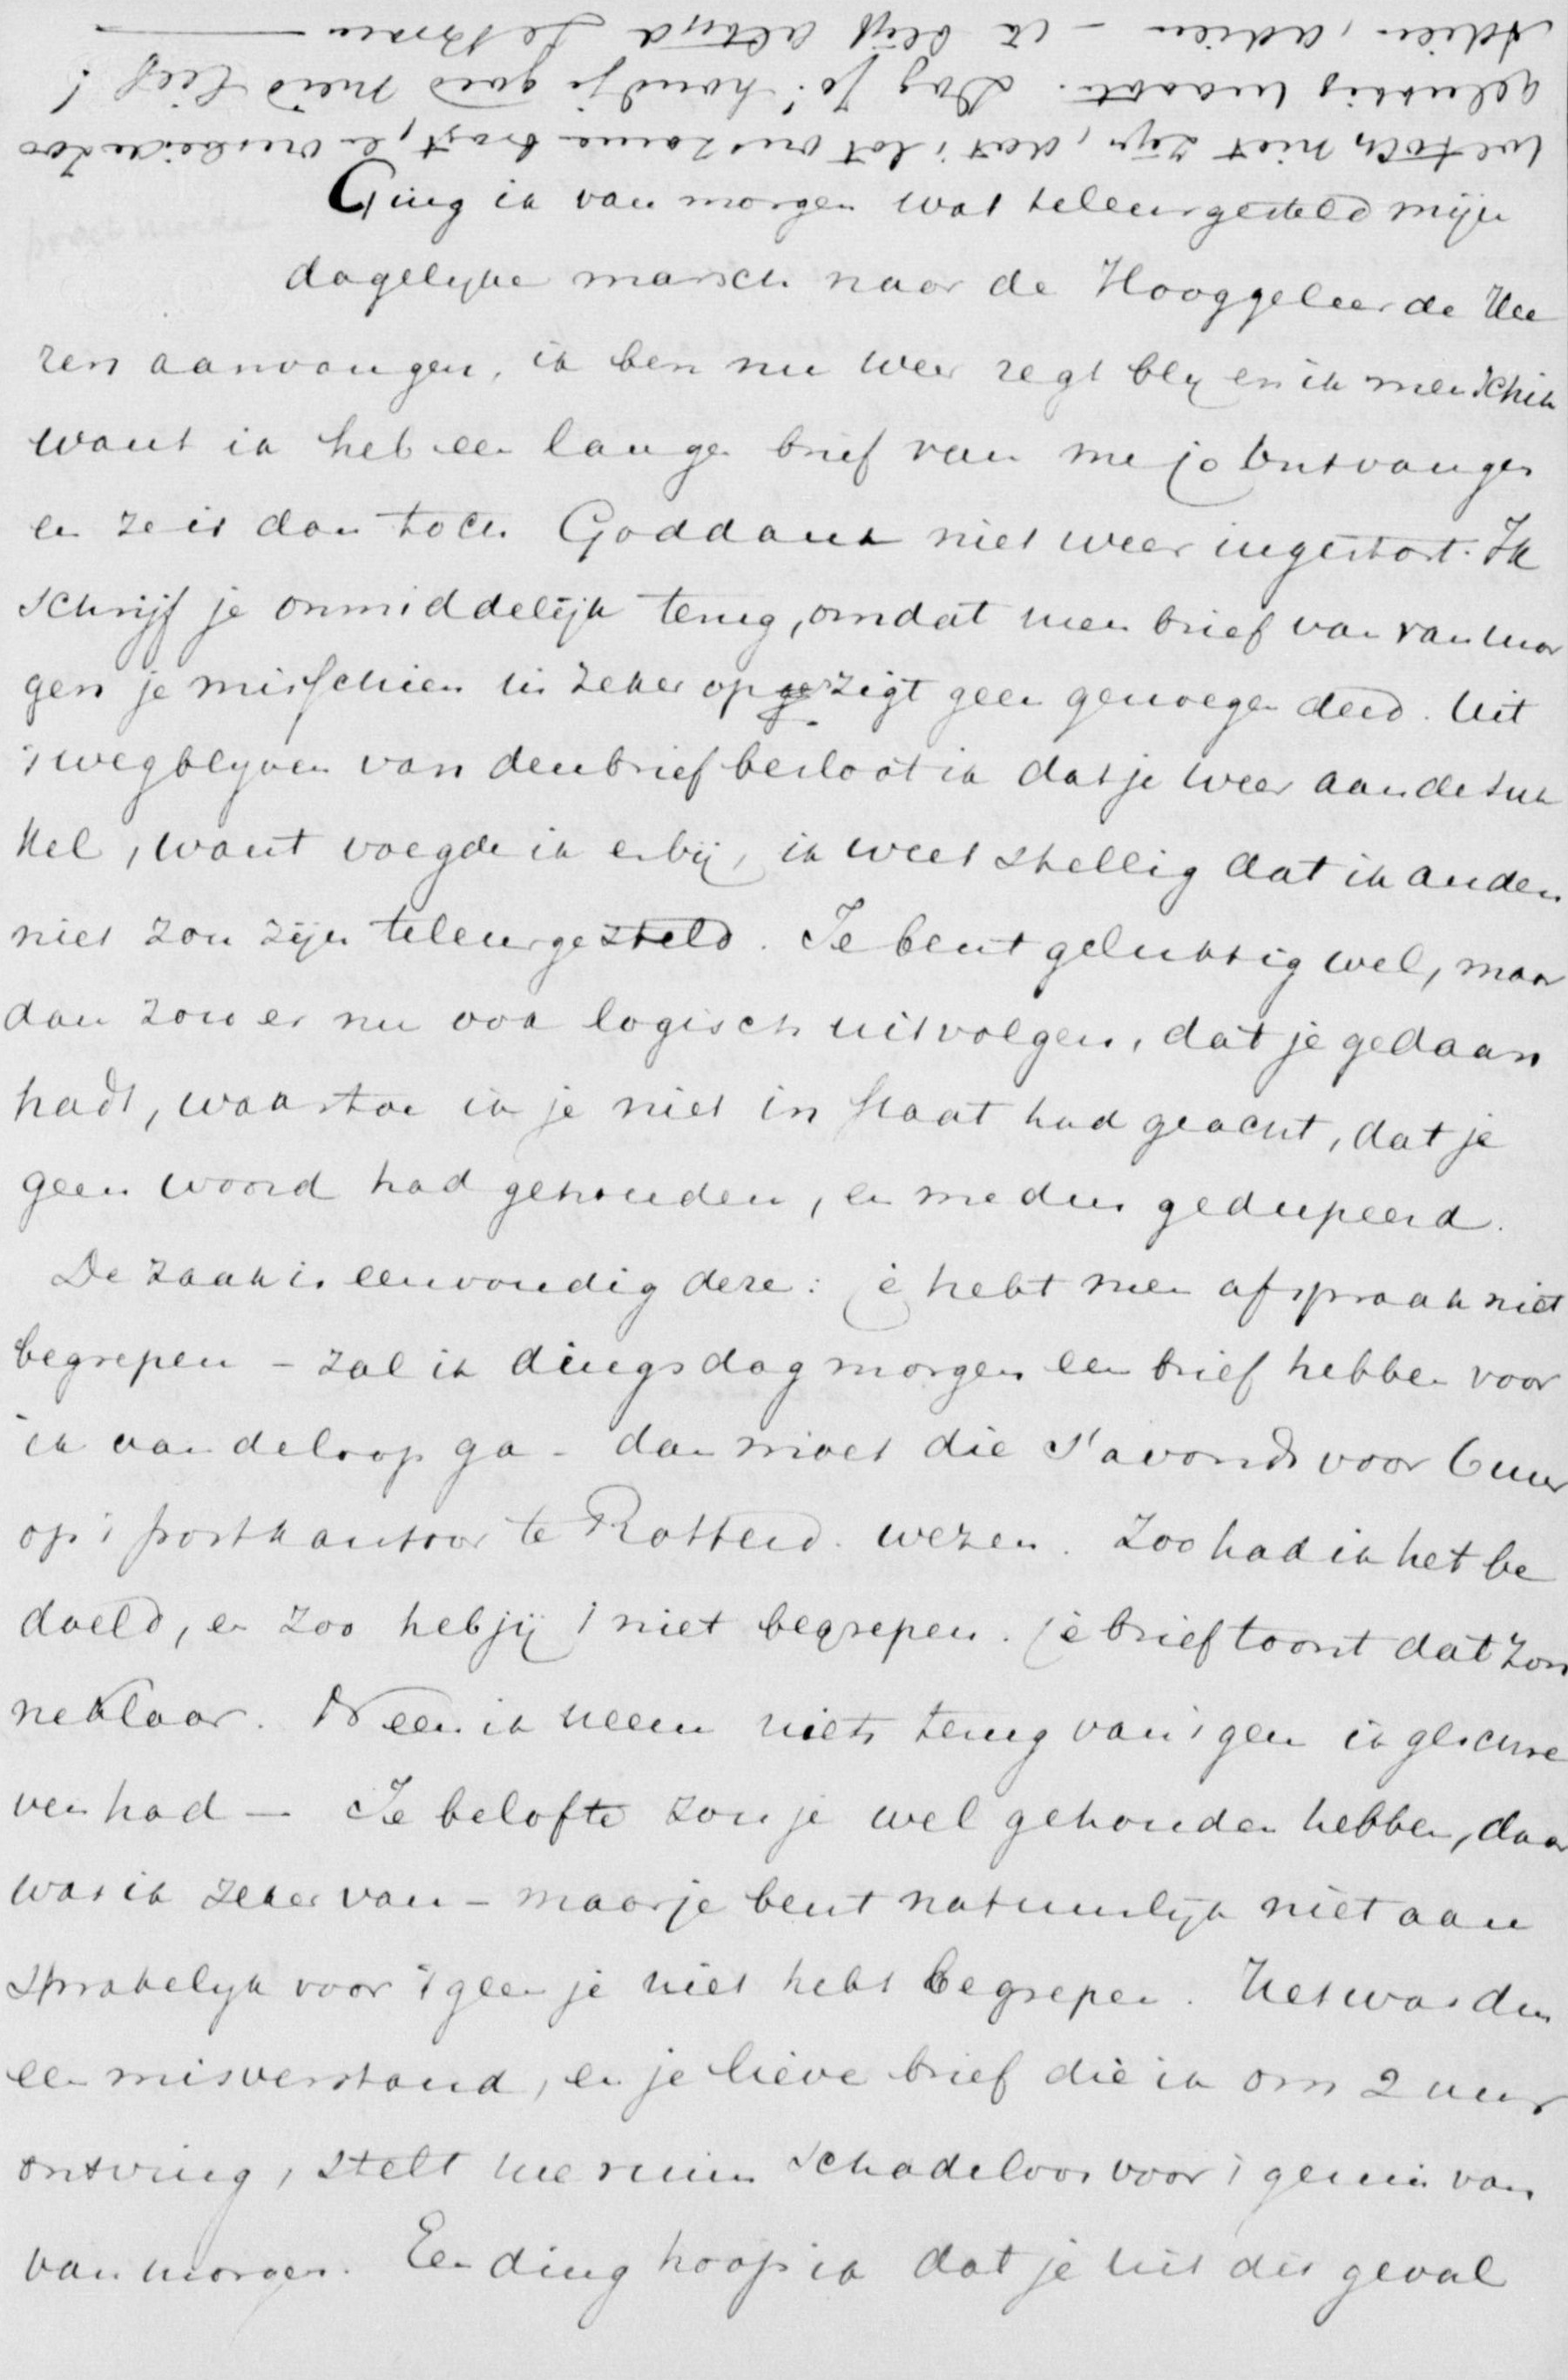 Adieu, adieu – ik blijf altijd je Bram
gelukkig maakt. Dag Jo! houd je goed meid lief!
het toch niet zijn, dat 't lot ons zamen bragt, en ons beide zoo
Ging ik van morgen wat teleurgesteld mijn
dagelijke marsch naar de Hooggeleerde Hee
ren aanvangen, ik ben nu weer regt blij en in men schik
want ik heb een lange brief van me Jo ontvangen
en ze is dan toch Goddank niet weer ingestort. Ik
schrijf je onmiddelijk terug, omdat men brief van van mor
gen je misschien in zeker opzigt geen genoegen deed. Uit
't wegblijven van den brief besloot ik dat je weer aan de suk
kel, want voegde ik erbij, ik weet stellig dat ik anders
niet zou zijn teleurgesteld. Je bent gelukkig wel, maar
dan zou er nu ook logisch uitvolgen, dat je gedaan
hadt, waartoe ik je niet in staat had geacht, dat je
geen woord had gehouden, en me dus gedupeerd.
De zaak is eenvoudig deze: je hebt men afspraak niet
begrepen – zal ik dingsdag morgen een brief hebben voor
ik aan de loop ga – dan moet die s'avonds voor 6 uur
op 't postkantoor te Rotterd. wezen. Zoo had ik het be
doeld, en zoo heb jij 't niet begrepen. je brief toont dat zon
neklaar. Neen ik neem niets terug van 't geen ik geschre
ven had – Je belofte zou je wel gehouden hebben, daar
was ik zeker van – maar je bent natuurlijk niet aan
sprakelijk voor 't geen je niet hebt begrepen. Het was dus
een misverstand, en je lieve brief die ik om 2 uur
ontving, stelt me ruim schadeloos voor 't gemis van
van morgen. Een ding hoop ik dat je uit dit geval